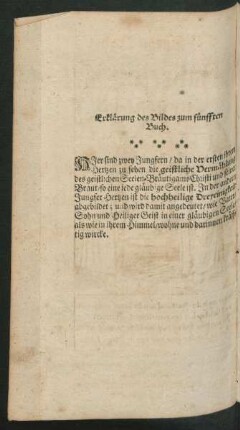 Erklärung des Bildes zum fünfften
Buch.
HJer sind zwey Jungfern / da in der ersten ihrem
Hertzen zu sehen die geistliche Vermählung
des geistlichen Seelen-Bräutigams Christi und seiner
Braut / so eine jede gläubige Seele ist. In der andern
Jungfer Hertzen ist die hochheilige Dreyeinigkeit
abgebildet; und wird damit angedeutet / wie Vater
Sohn und Heiliger Geist in einer gläubigen Seele
als wie in ihrem Himmel wohne und darinnen kräff-
tig wircke.